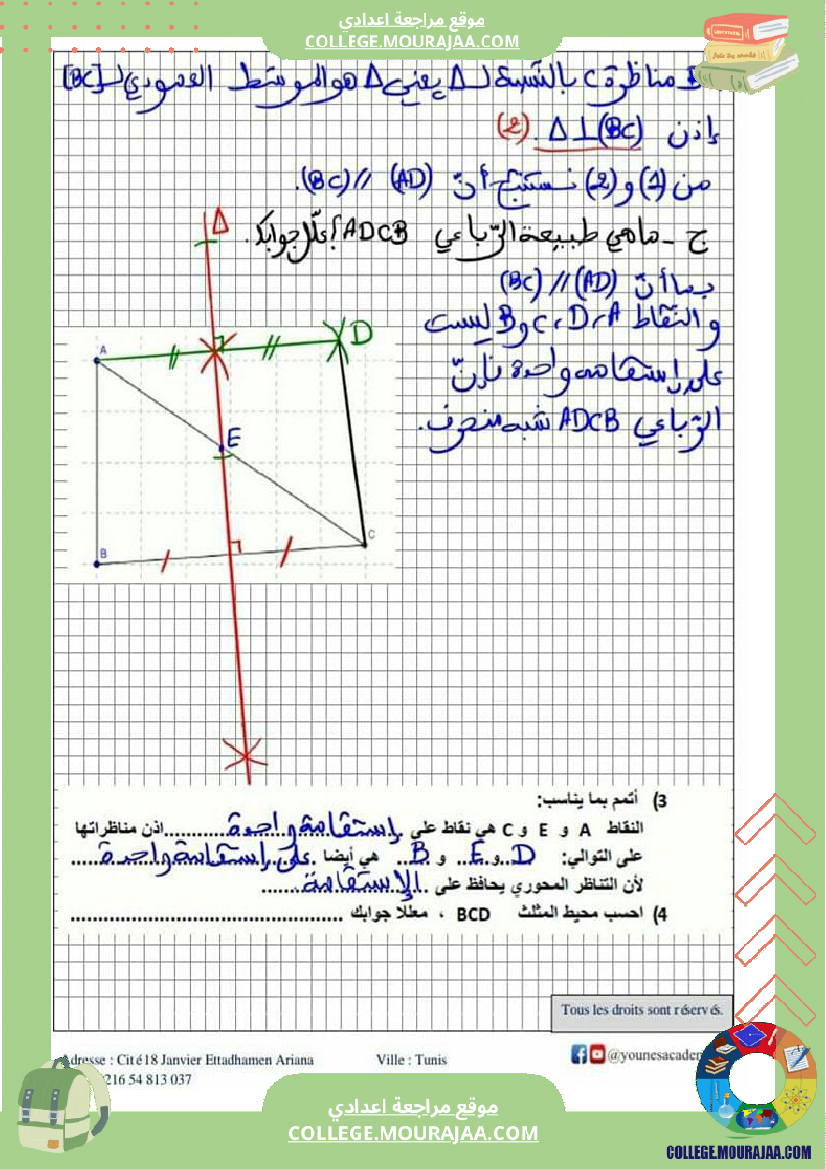 موقع مراجعة اعدادي
COLLEGE.MOURAJAA.COM
B مناظرة C بالنسبة لـ Δ يعني Δ هو الموسط العمودي لـ [BC]
إذن Δ⊥(BC). (2)
من (1) و (2) نستنتج أنّ (AD) // (BC).
ج - ماهي طبيعة الرّباعي ADCB؟ علّل جوابك.
بما أنّ (AD) // (BC)
والنقاط A، D، C و B ليست
على إستقامة واحدة فإنّ
الرّباعي ADCB شبه منحرف.
Δ
A
D
E
C
B
3) أتمم بما يناسب:
النقاط A و E و C هي نقاط على إستقامة واحدة اذن مناظراتها
على التوالي: D و E و B هي أيضا على إستقامة واحدة
لأن التناظر المحوري يحافظ على الإستقامة
4) احسب محيط المثلث BCD ، معللا جوابك
Tous les droits sont réservés.
Adresse : Cité 18 Janvier Ettadhamen Ariana Ville : Tunis @younesacadem
216 54 813 037
موقع مراجعة اعدادي
COLLEGE.MOURAJAA.COM
COLLEGE.MOURAJAA.COM